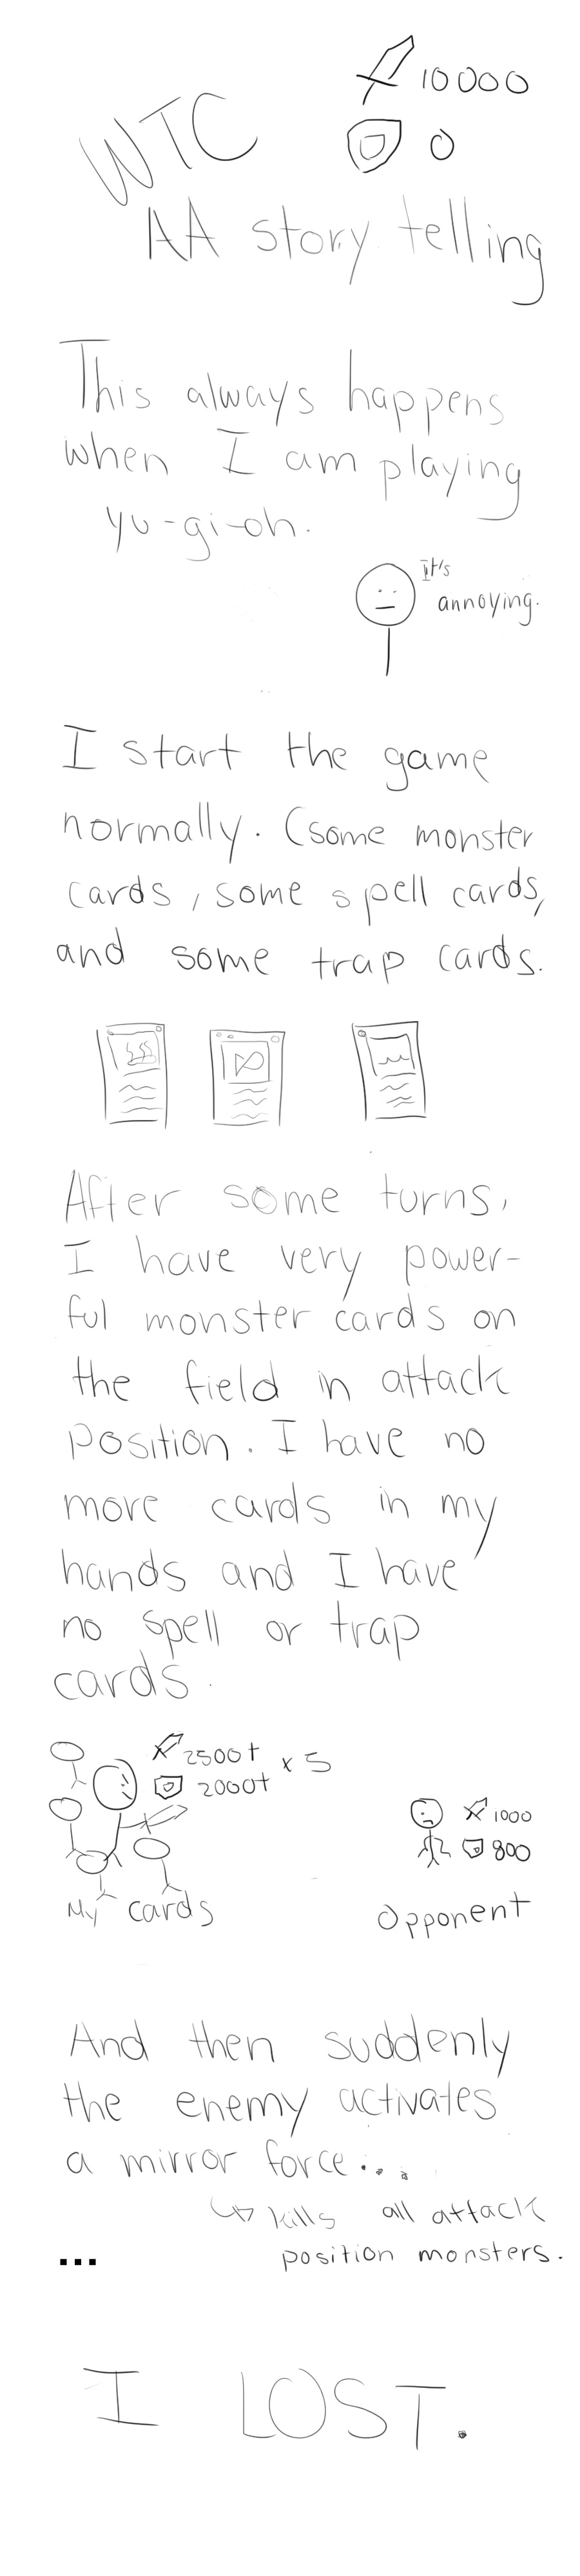 10000
WTC
0
AA story telling
This always happens
when I am playing
yu-gi-oh.
It's
annoying.
I start the game
normally. (some monster
cards, some spell cards,
and some trap cards.
After some turns,
I have very power-
ful monster cards on
the field in attack
position. I have no
more cards in my
hands and I have
no spell or trap
cards.
2500+ x 5
2000+
1000
800
My cards
Opponent
And then suddenly
the enemy activates
a mirror force...
↳ kills all attack
position monsters.
...
I LOST.